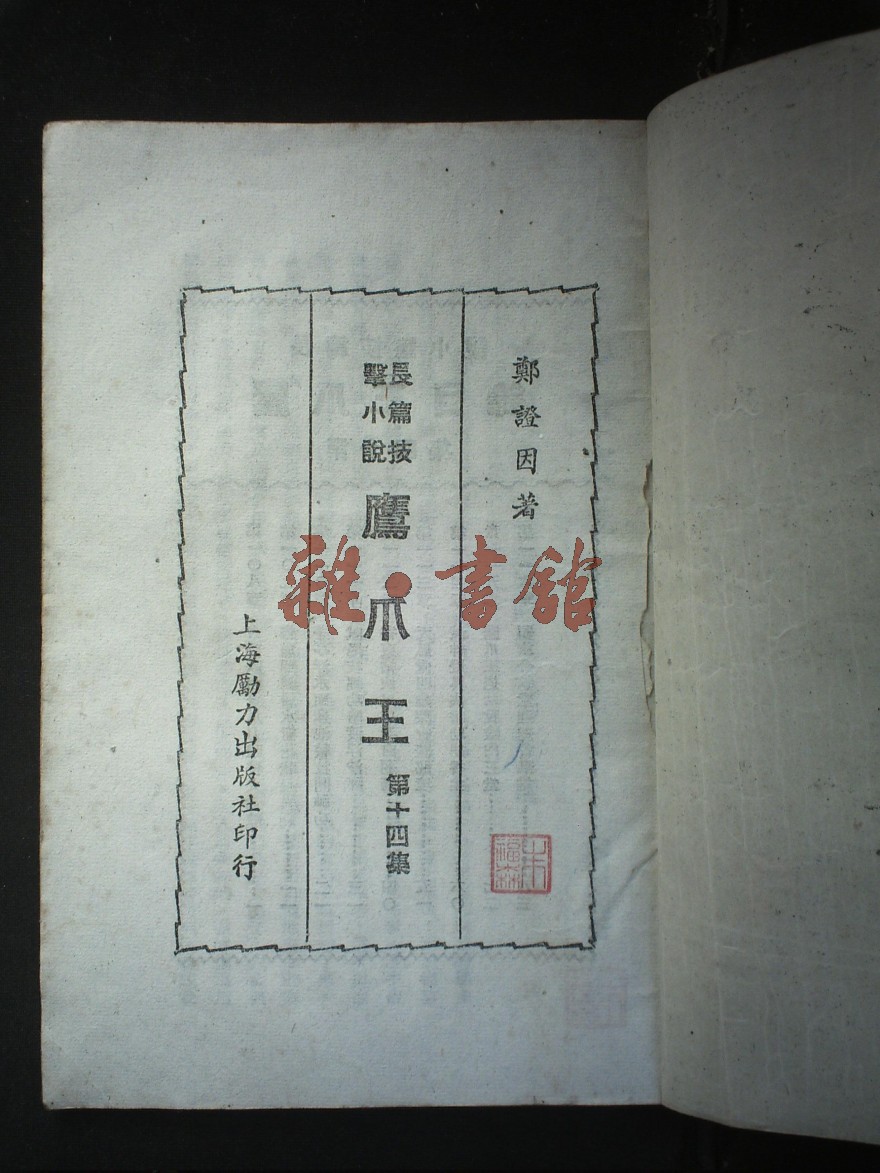 鄭證因著
長篇技
擊小說
鷹爪王
第十四集
上海勵力出版社印行
雜·書館